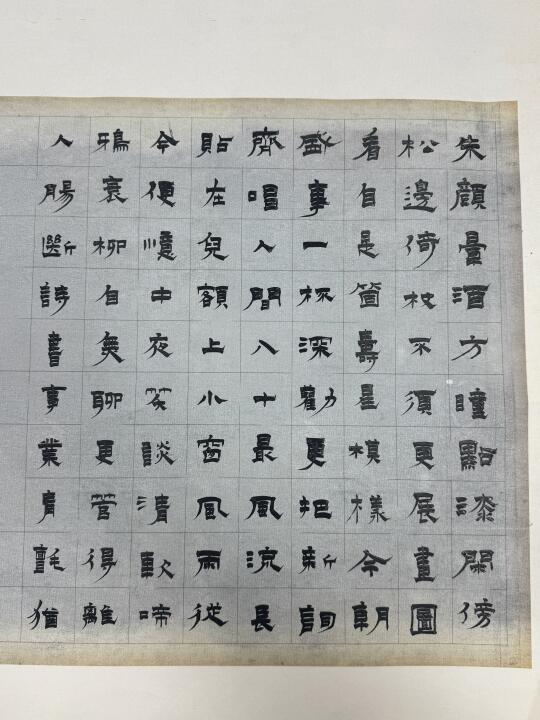 朱顏暈酒方瞳點漆閑傍
松邊倚杖不須更展畫圖
看自是箇壽星模樣今朝
盛事一杯深勸更把新詞
齊唱人間八十最風流長
貼在兒額上小窗風雨從
今便憶中夜笑談清軟啼
鴉衰柳自無聊更管得離
人腸斷詩書事業青氈猶